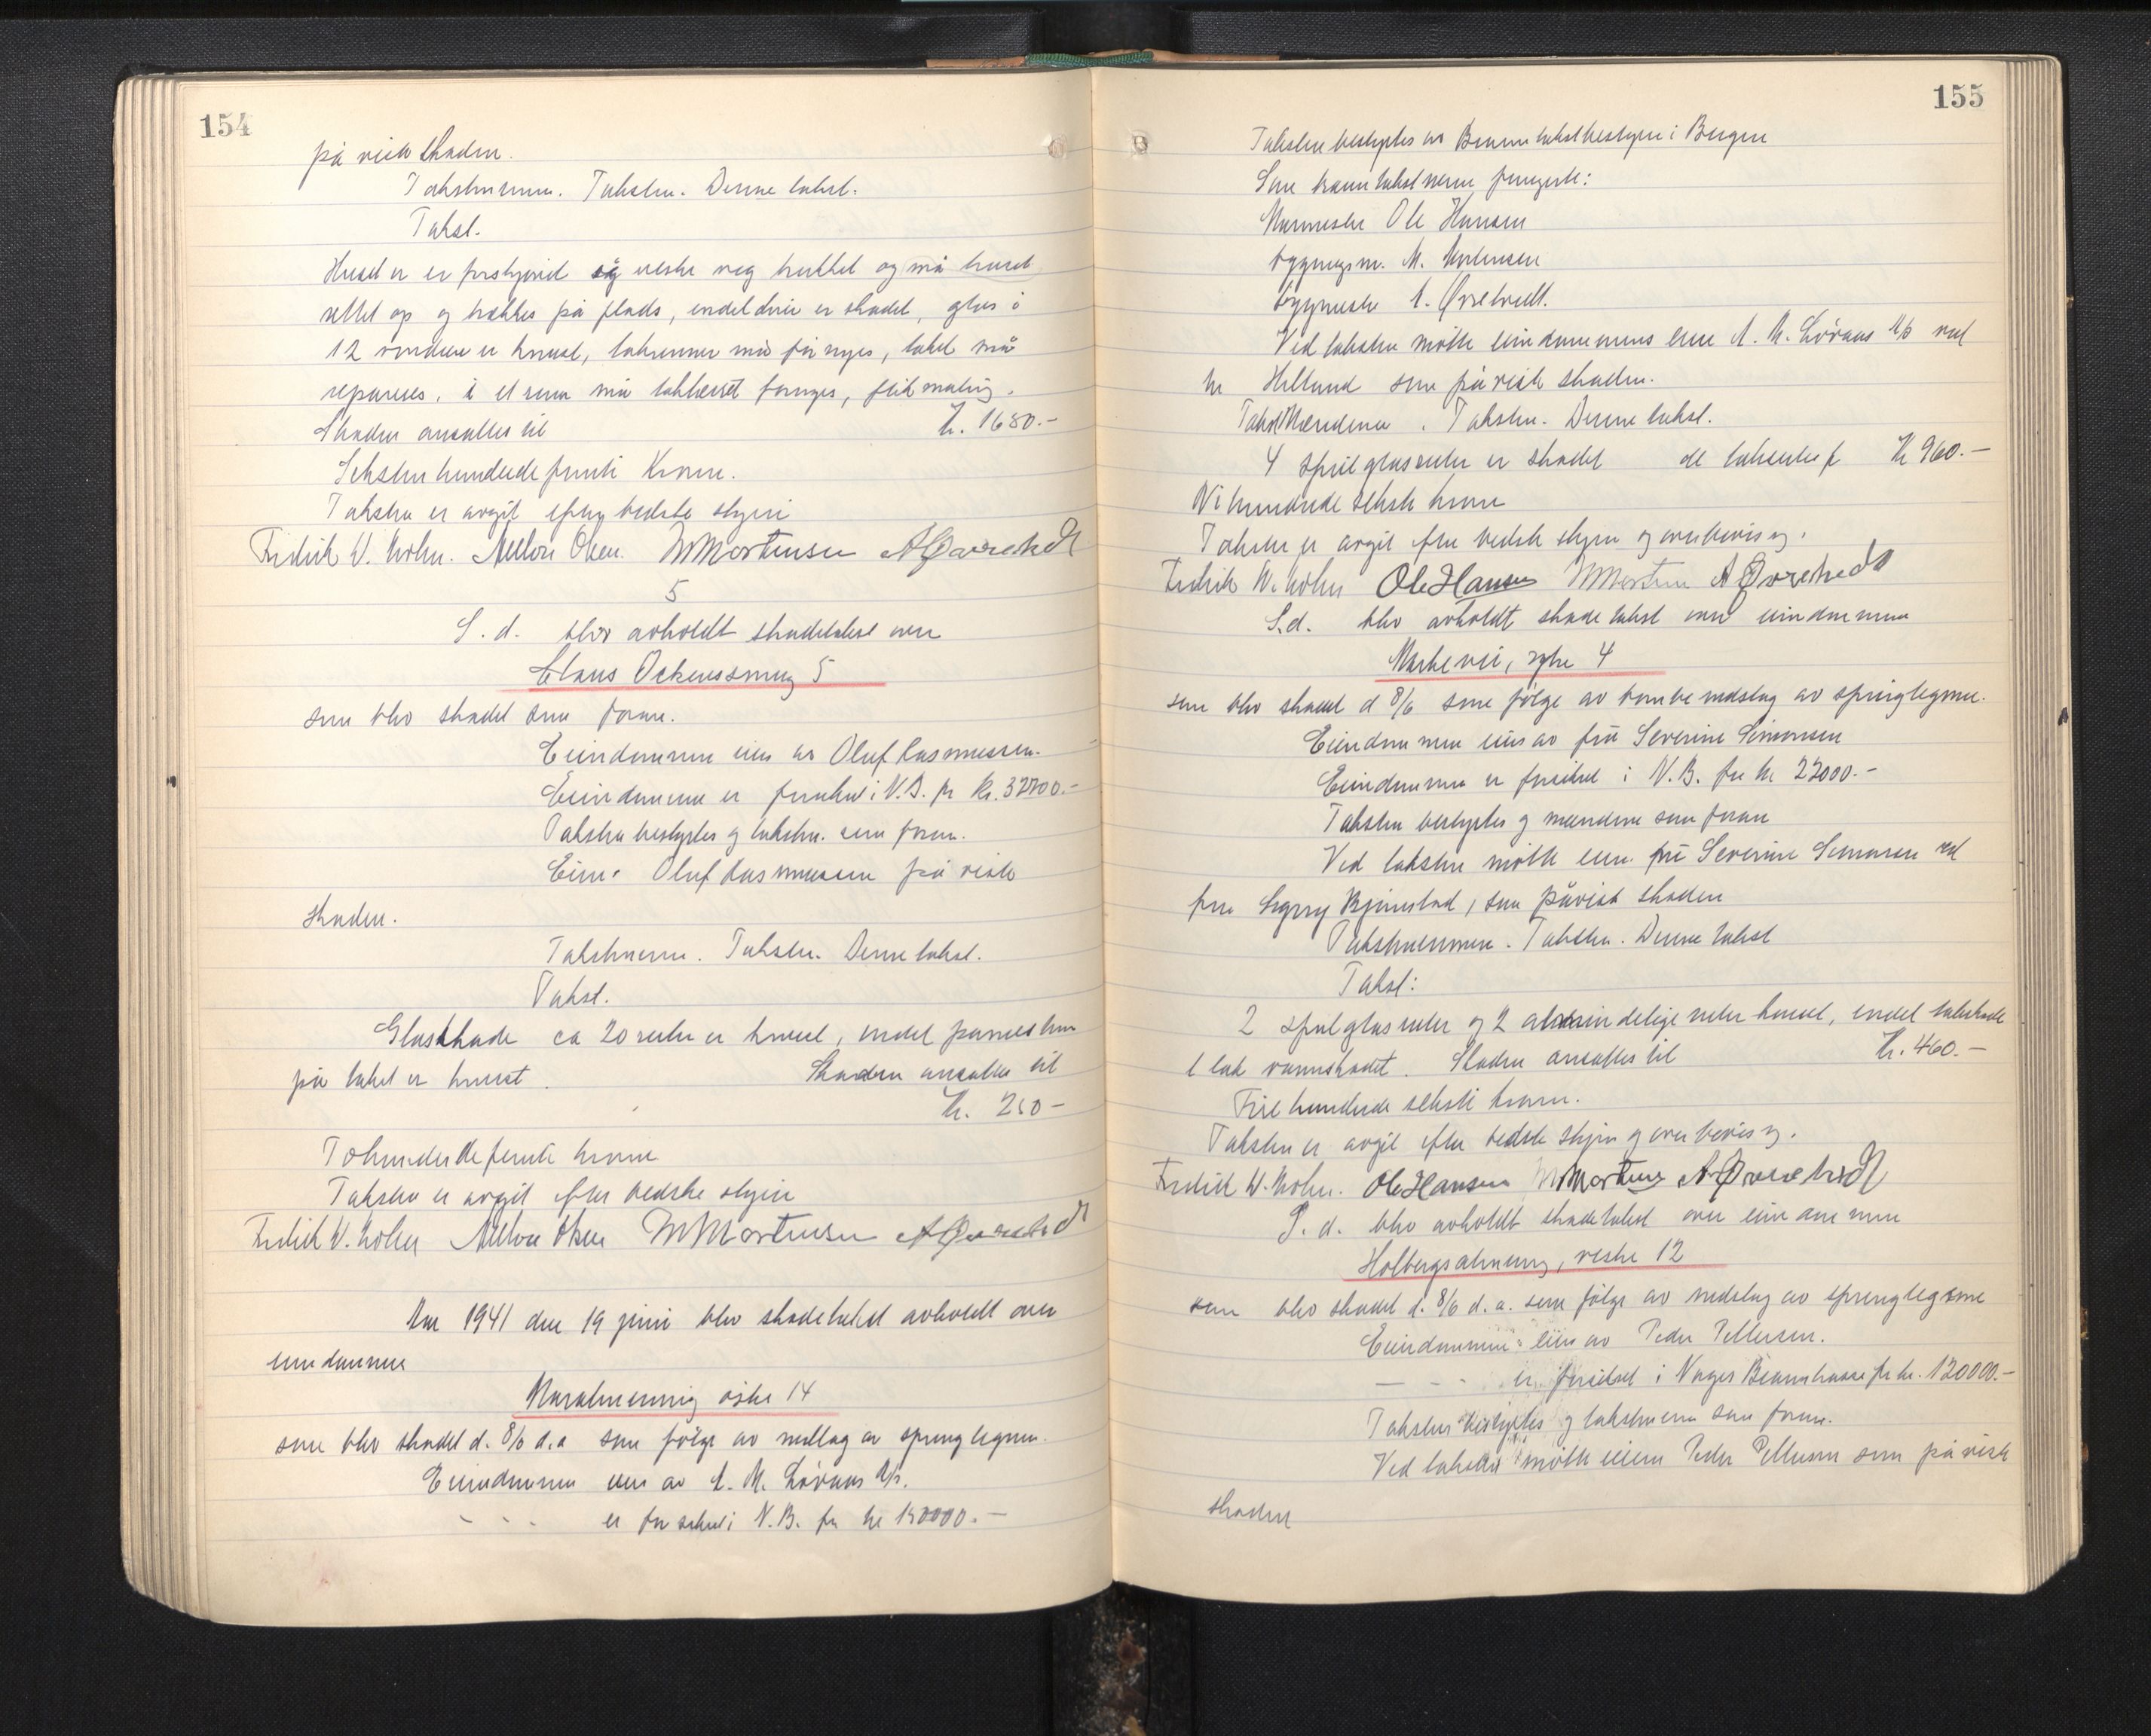 154
påviste skaden.
Takstnernm. Taksten. Denne takst.
Takst.
Huset er er forskjøvet og vestre veg trukket og må huset
rettet op og trekkes på plads, endel dører er skadet, glas i
12 vinduer er knust, takrenner må fornyes, taket må
repareres, i et rum må takbræt fornyes, flik maling.
Skaden ansættes til Kr. 1650.-
Sekstenhundrede femti Kroner.
Taksten er avgit efter bedste skjøn
Fredrik W. Holm. Milton Olsen. M Mortensen A Øvretvedt
5
S. d. blev avholdt skadetakst over
Claus Ockenssmug 5
som blev skadet som foran.
Eiendommen eies av Oluf Rasmussen.
Eiendommen er forsikret i N.B. for kr. 32700.-
Taksten bestyrtes og takstm. som foran.
Eier Oluf Rasmussen påviste
skaden.
Takstnerne. Taksten. Denne takst.
Takst.
Glasskade ca 20 ruter er knust, endel pannesten
på taket er knust. Skaden ansættes til
Kr. 250-
Tohundrede femti kroner
Taksten er avgit efter bedste skjøn
Fredrik W. Holm Milton Olsen M Mortensen A Øvretvedt
Aar 1941 den 19 juni blev skadetakst avholdt over
eiendommen
Muralmenning østre 14
som blev skadet d. 8/6 d.a som følge av nedslag av sprenglegeme.
Eiendommen eies av A. M. Løvaas A/s.
- - - er forsikret i N.B. for kr 150000.-
155
Taksten bestyrtes av Branntakstbestyrer i Bergen
Som branntakstmenn fungerte:
Murmester Ole Hansen
bygningsm. M. Mortensen
byggmester A. Øvretvedt.
Ved taksten møtte eiendommens eier A. M. Løvaas A/s ved
hr Helland som påviste skaden.
Takstmændene. Taksten. Denne takst.
4 speilglasruter er skadet de taksertes for Kr 960.-
Nihundrede seksti kroner
Taksten er avgit efter bedste skjøn og overbevisng.
Fredrik W. Holm Ole Hansen M Mortensen A Øvretvedt
S.d. blev avholdt skadetakst over eiendommen
Markevei, søndre 4
som blev skadet d 8/6 som følge av bombenedslag av sprenglegeme.
Eiendommen eies av frü Severine Simonsen
Eiendommen er forsikret i N.B. for kr 22000.-
Taksten bestyrtes og mændene som foran
Ved taksten møtte eier. frü Severine Simonsen ved
frü Bjørnstad, som påviste skaden
Takstmennene. Taksten. Denne takst
Takst:
2 speilglasruter og 2 almindelige ruter knust, endel takskade
1 tak vannskadet. Skaden ansættes til Kr. 460.-
Firehundrede seksti kroner.
Taksten er avgit efter bedste skjøn og overbevisng.
Fredrik W. Holm. Ole Hansen M Mortensen A. Øvretvedt
S. d. blev avholdt skadetakst over eiendommen
Holbergsalmening, vestre 12
som blev skadet d. 8/6 d.a. som følge av nedslag av sprenglegeme
Eiendommen eies av Peder Pettersen.
- - - er forsikret i Norges Brannkasse for kr. 120000.-
Taksten bestyrtes og takstmenn som foran.
Ved taksten møtte eieren Peder Pettersen som påviste
skaden